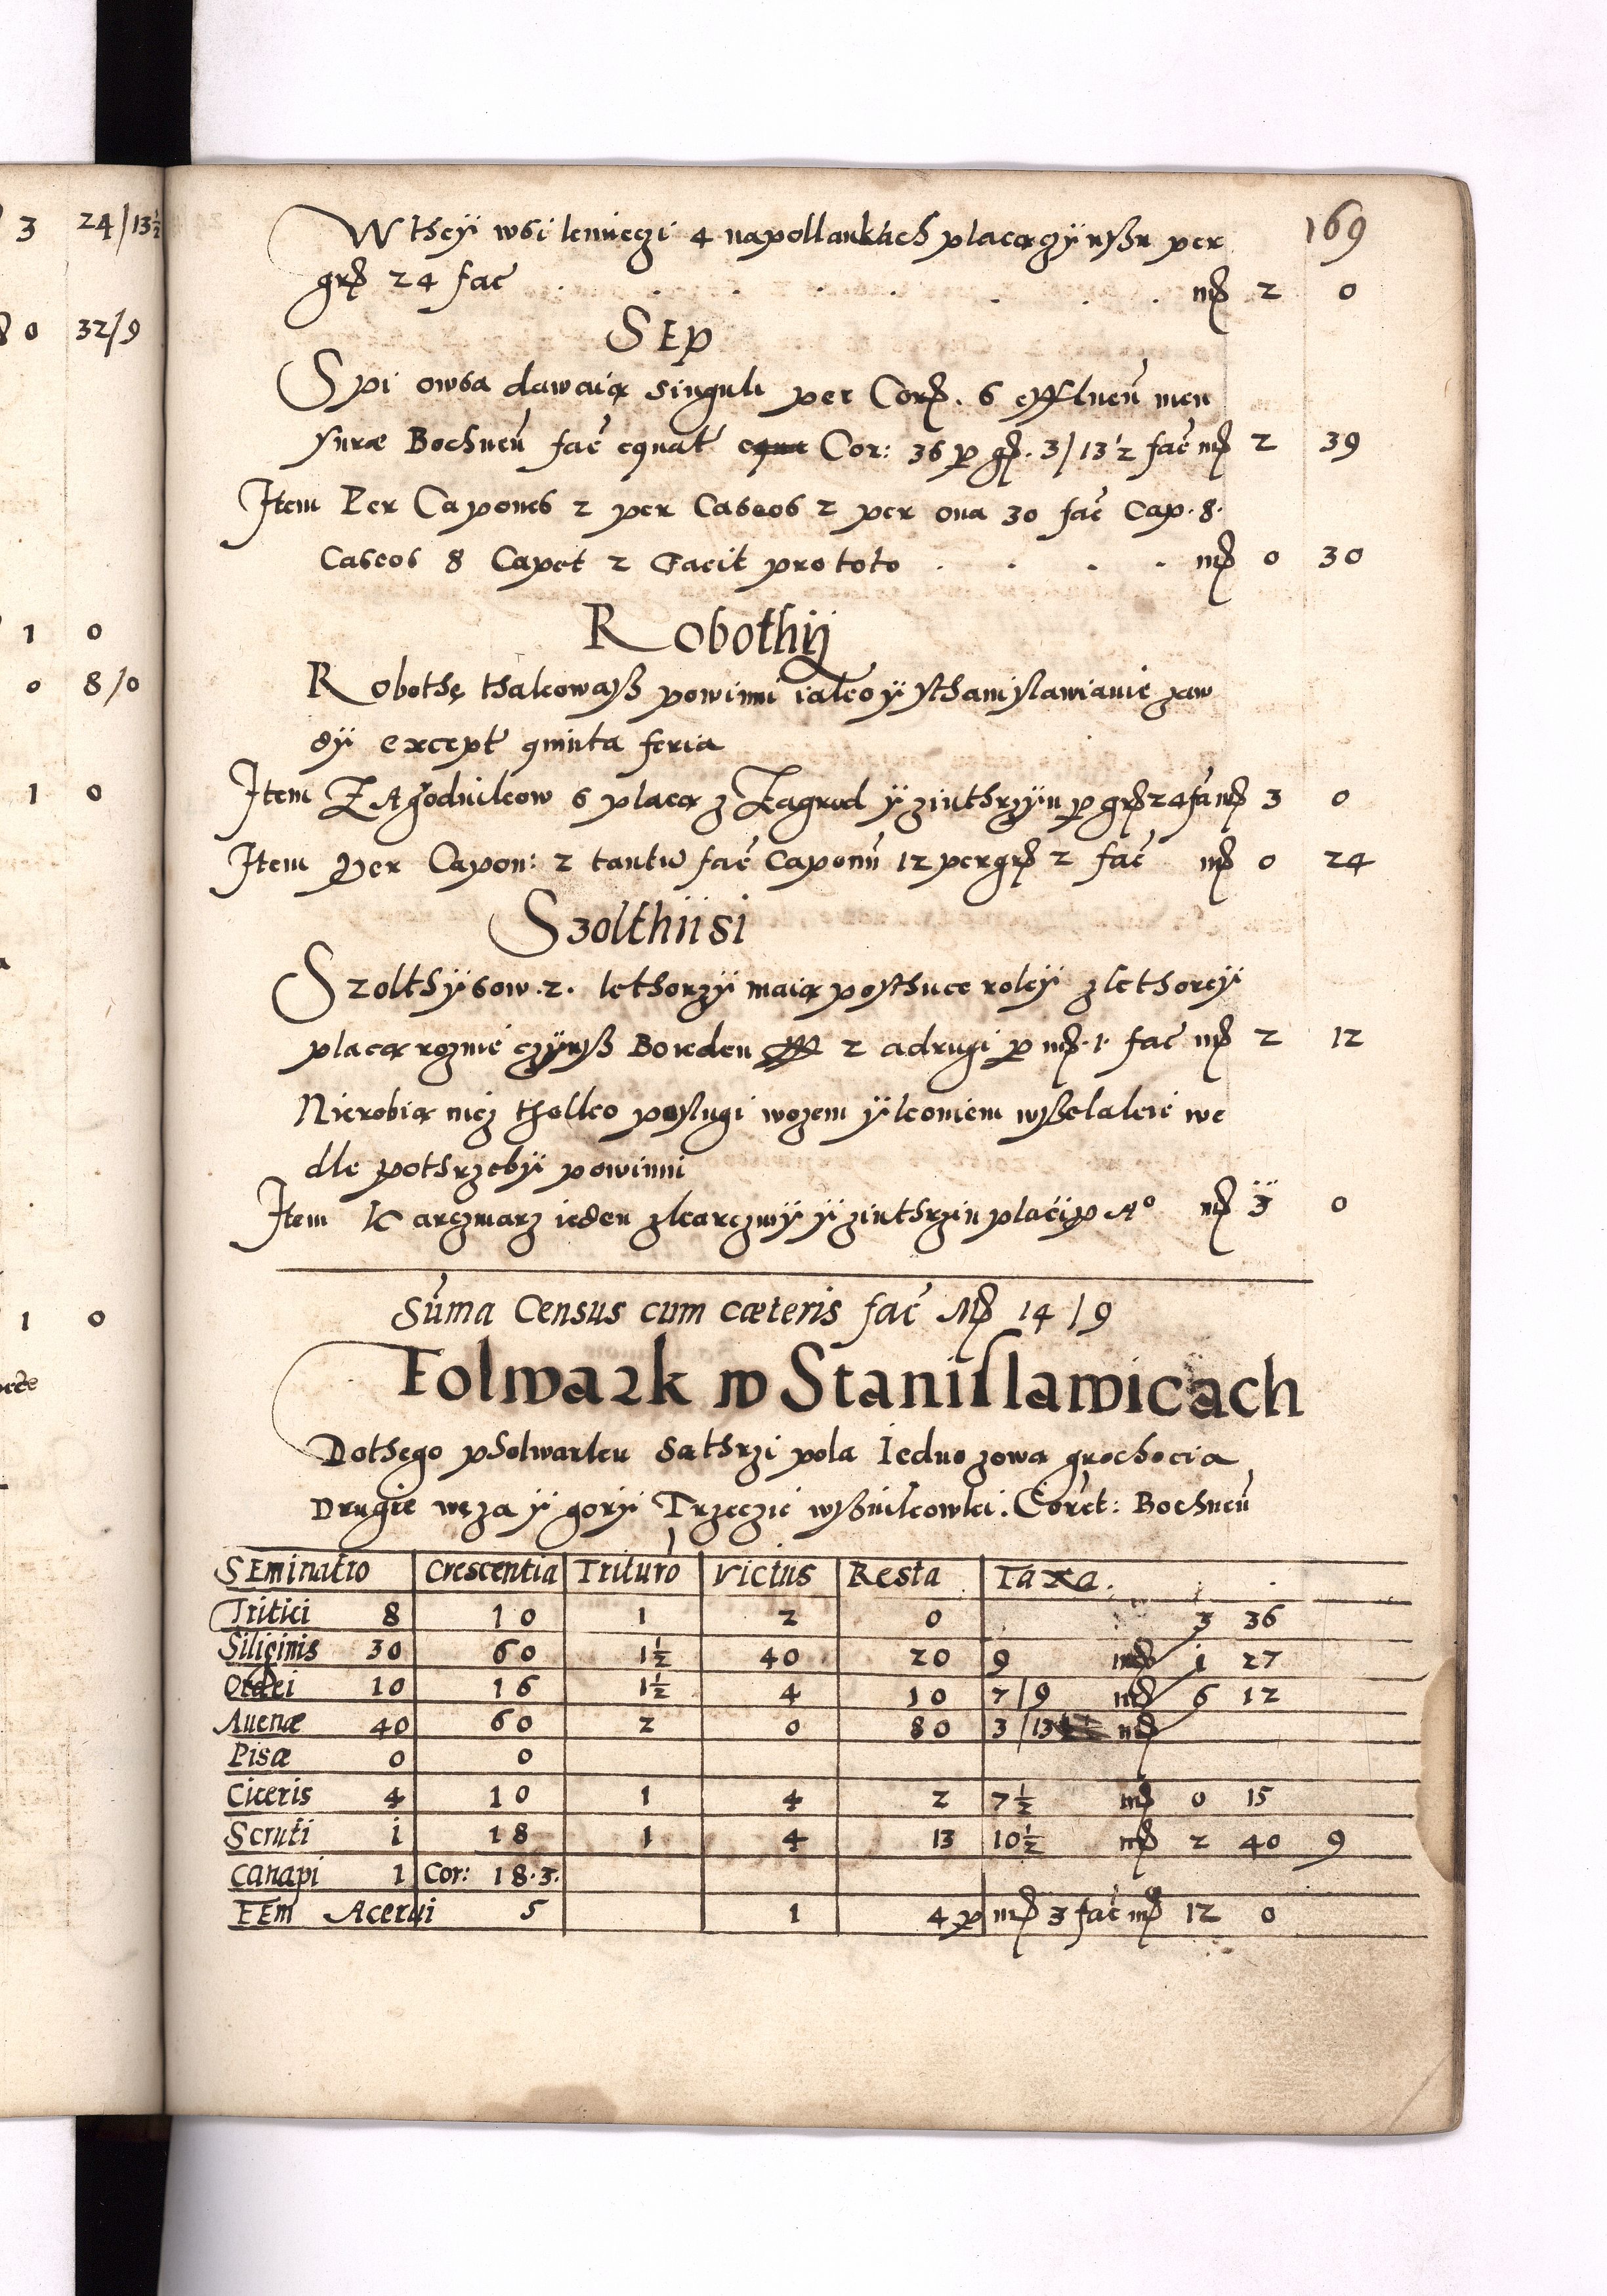 169
W they wsi kmieczi 4 na pollankach placą czÿnßu per
grß 24 fac . . . . . . . mß 2 0
SEp
Spi owsa dawaią singuli per Corß. 6 effluen̄ men
suræ Bochnen̄ fac̄ equat̄ Cor: 36 p gß. 3/13½ fac̄ mß 2 39
Item Per Capones 2 per Caseos 2 per oua 30 fac̄ Cap. 8.
Caseos 8 Capet 2 Facit pro toto . . . . mß 0 30
Robothÿ
Robothę thakowąß powinni iako ÿ sthanislawianie zaw
dÿ except̄ quinta feria
Item ZAgrodnikow 6 placą z Zagrod ÿ zinthrzÿn p grß 24 fa mß 3 0
Item Per Capon: 2 tantū fac̄ Caponū 12 per grß 2 fac̄ mß 0 24
Szolthiisi
Szolthÿsow .2. kthorzÿ maią po sthuce roleÿ z kthoreÿ
placą roznie czÿnß Borden 2 a drugi p mß. 1. fac mß 2 12
Nie robią nicz tholko posługi wozem ÿ koniem wßelakie we
dle pothrzebÿ powinni
Item Karczmarz ieden z karczmÿ ÿ zinthrzin placi p A° mß 3 0
Sūma Census cum cæteris fac̄ Mß 14/9
Folwark w Stanislawicach
Do thego pholwarku sa thrzi pola Iedno zowa grochocia
Drugie węza ÿ gorÿ Trzeczie wÿßnikowki. Coret: Bochnen̄
SEminatio Crescentia Trituro Victus Resta Taxa.
Tritici 8 10 1 2 0 3 36
Siliginis 30 60 1½ 40 20 9 mß 1 27
Ordei 10 16 1½ 4 10 7/9 mß 6 12
Auenæ 40 60 2 0 80 3/13 mß
Pisæ 0 0
Ciceris 4 10 1 4 2 7½ mß 0 15
Scruti 1 18 1 4 13 10½ mß 2 40 9
Canapi 1 Cor: 18.3.
FEm Acerui 5 1 4 p mß 3 fac̄ mß 12 0
3 24/13½
0 32/9
1 0
0 8/0
1 0
1 0